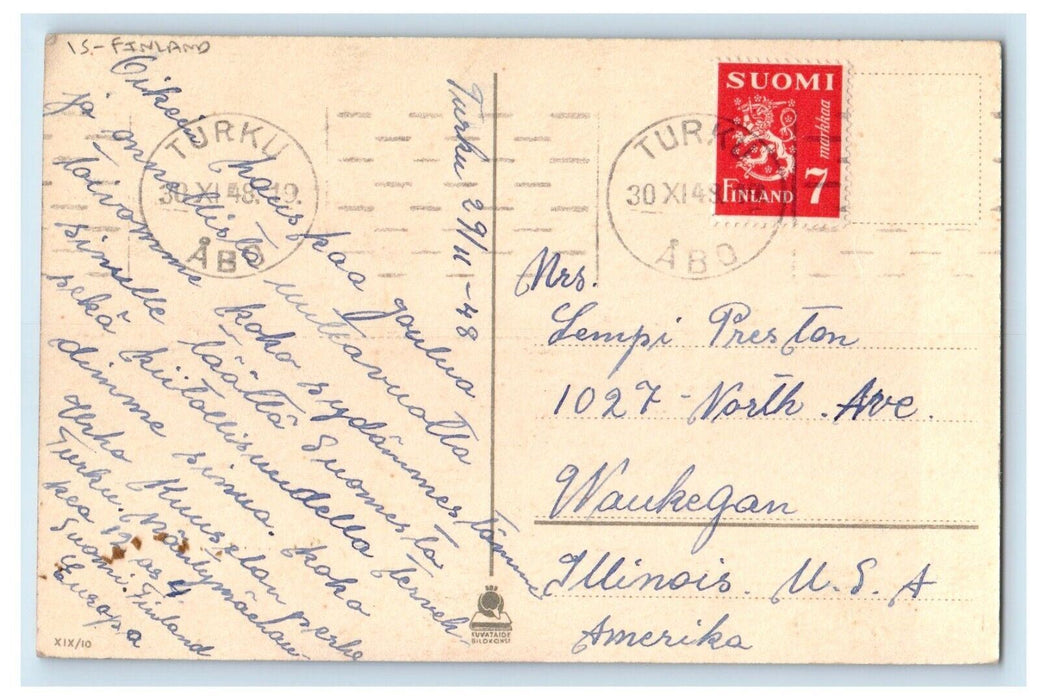 IS-FINLAND
Turku 29/11-48
Oikein hauskaa joulua
ja onnellista uuttavuotta
toivomme koko sydämmestämme
sinulle täältä Suomesta
sekä kiitollisuudella terveh-
dimme sinua. koko
Kuuselan perhe
Turku.
kea 12 as 4
Suomi. Finland
Europa
TURKU
30 XI 48. 19.
ÅBO
TURKU
30 XI 48
ÅBO
SUOMI
markkaa
FINLAND 7
Mrs.
Lempi Preston
1027 - North. Ave.
Waukegan
Illinois. U. S. A
Amerika
KUVATAIDE
BILDKONST
XIX/10